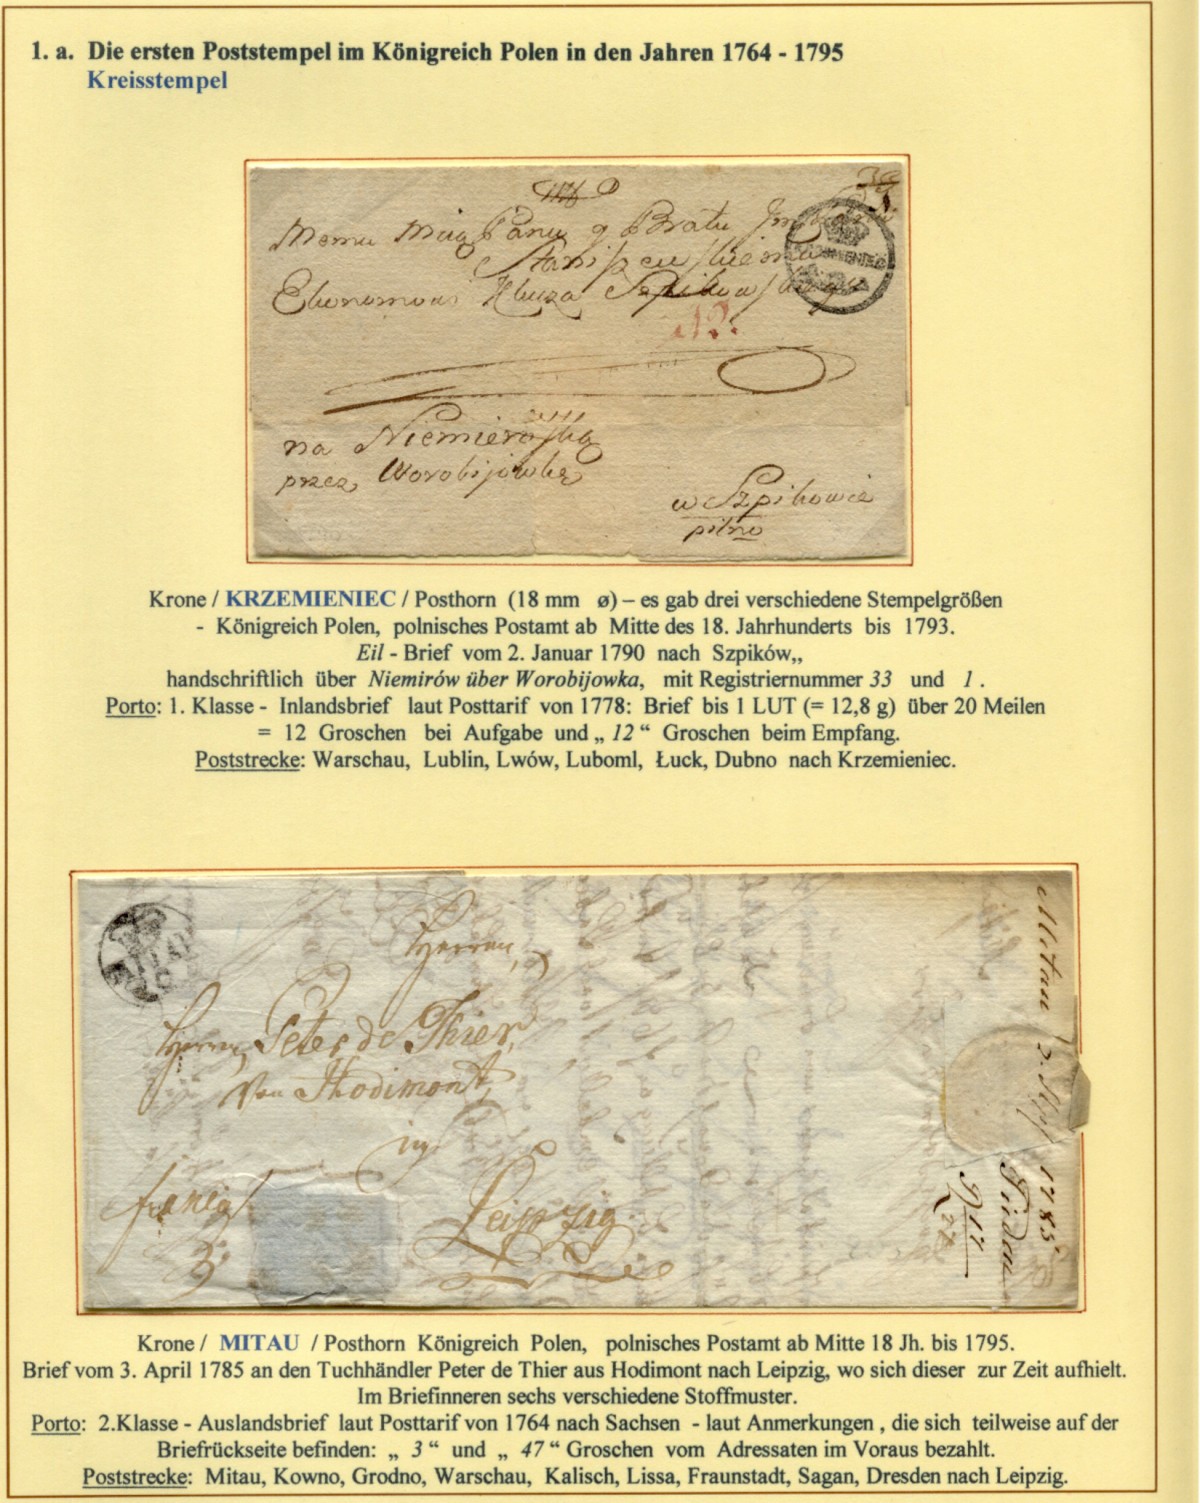 1. a. Die ersten Poststempel im Königreich Polen in den Jahren 1764 - 1795
Kreisstempel
Memu Panu y Bratu
na Niemierowką
przez Worobijowkę
w Szpikowie
pilno
Krone / KRZEMIENIEC / Posthorn (18 mm ø) – es gab drei verschiedene Stempelgrößen
- Königreich Polen, polnisches Postamt ab Mitte des 18. Jahrhunderts bis 1793.
Eil - Brief vom 2. Januar 1790 nach Szpików,,
handschriftlich über Niemirów über Worobijowka, mit Registriernummer 33 und 1 .
Porto: 1. Klasse - Inlandsbrief laut Posttarif von 1778: Brief bis 1 LUT (= 12,8 g) über 20 Meilen
= 12 Groschen bei Aufgabe und „ 12 “ Groschen beim Empfang.
Poststrecke: Warschau, Lublin, Lwów, Luboml, Łuck, Dubno nach Krzemieniec.
MITAU
Herren,
Herrn Peter de Thier,
Von Hodimont,
in
Leipzig
franco
3
Mitau 1785
Krone / MITAU / Posthorn Königreich Polen, polnisches Postamt ab Mitte 18 Jh. bis 1795.
Brief vom 3. April 1785 an den Tuchhändler Peter de Thier aus Hodimont nach Leipzig, wo sich dieser zur Zeit aufhielt.
Im Briefinneren sechs verschiedene Stoffmuster.
Porto: 2.Klasse - Auslandsbrief laut Posttarif von 1764 nach Sachsen - laut Anmerkungen , die sich teilweise auf der
Briefrückseite befinden: „ 3 “ und „ 47 “ Groschen vom Adressaten im Voraus bezahlt.
Poststrecke: Mitau, Kowno, Grodno, Warschau, Kalisch, Lissa, Fraunstadt, Sagan, Dresden nach Leipzig.